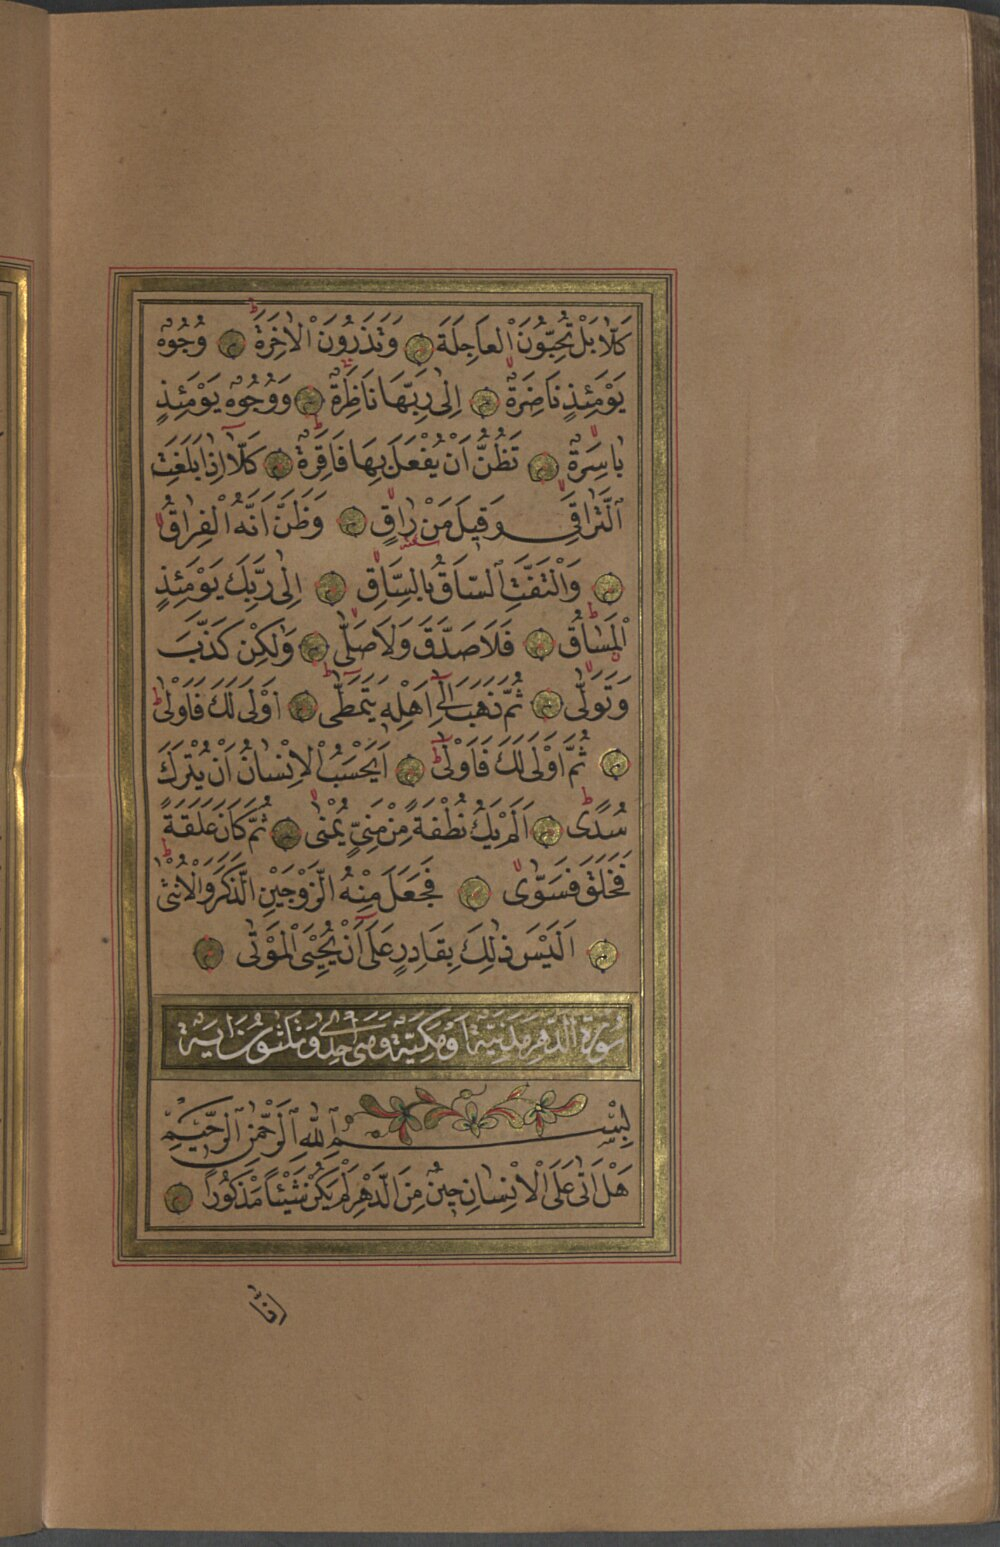 كَلَّا بَلْ تُحِبُّونَ الْعَاجِلَةَ وَتَذَرُونَ الْاٰخِرَةَ وُجُوهٌ
يَوْمَئِذٍ نَاضِرَةٌ اِلٰى رَبِّهَا نَاظِرَةٌ وَوُجُوهٌ يَوْمَئِذٍ
بَاسِرَةٌ تَظُنُّ اَنْ يُفْعَلَ بِهَا فَاقِرَةٌ كَلَّا اِذَا بَلَغَتِ
التَّرَاقِيَ وَقِيلَ مَنْ رَاقٍ وَظَنَّ اَنَّهُ الْفِرَاقُ
وَالْتَفَّتِ السَّاقُ بِالسَّاقِ اِلٰى رَبِّكَ يَوْمَئِذٍ
الْمَسَاقُ فَلَا صَدَّقَ وَلَا صَلّٰى وَلٰكِنْ كَذَّبَ
وَتَوَلّٰى ثُمَّ ذَهَبَ اِلٰى اَهْلِهِ يَتَمَطّٰى اَوْلٰى لَكَ فَاَوْلٰى
ثُمَّ اَوْلٰى لَكَ فَاَوْلٰى اَيَحْسَبُ الْاِنْسَانُ اَنْ يُتْرَكَ
سُدًى اَلَمْ يَكُ نُطْفَةً مِنْ مَنِيٍّ يُمْنٰى ثُمَّ كَانَ عَلَقَةً
فَخَلَقَ فَسَوّٰى فَجَعَلَ مِنْهُ الزَّوْجَيْنِ الذَّكَرَ وَالْاُنْثٰى
اَلَيْسَ ذٰلِكَ بِقَادِرٍ عَلٰى اَنْ يُحْيِيَ الْمَوْتٰى
سُورَةُ الدَّهْرِ مَدَنِيَّةٌ اَوْ مَكِّيَّةٌ وَهِيَ اِحْدٰى وَثَلٰثُونَ اٰيَةً
بِسْمِ اللّٰهِ الرَّحْمٰنِ الرَّحِيمِ
هَلْ اَتٰى عَلَى الْاِنْسَانِ حِينٌ مِنَ الدَّهْرِ لَمْ يَكُنْ شَيْئًا مَذْكُورًا
اِنَّا